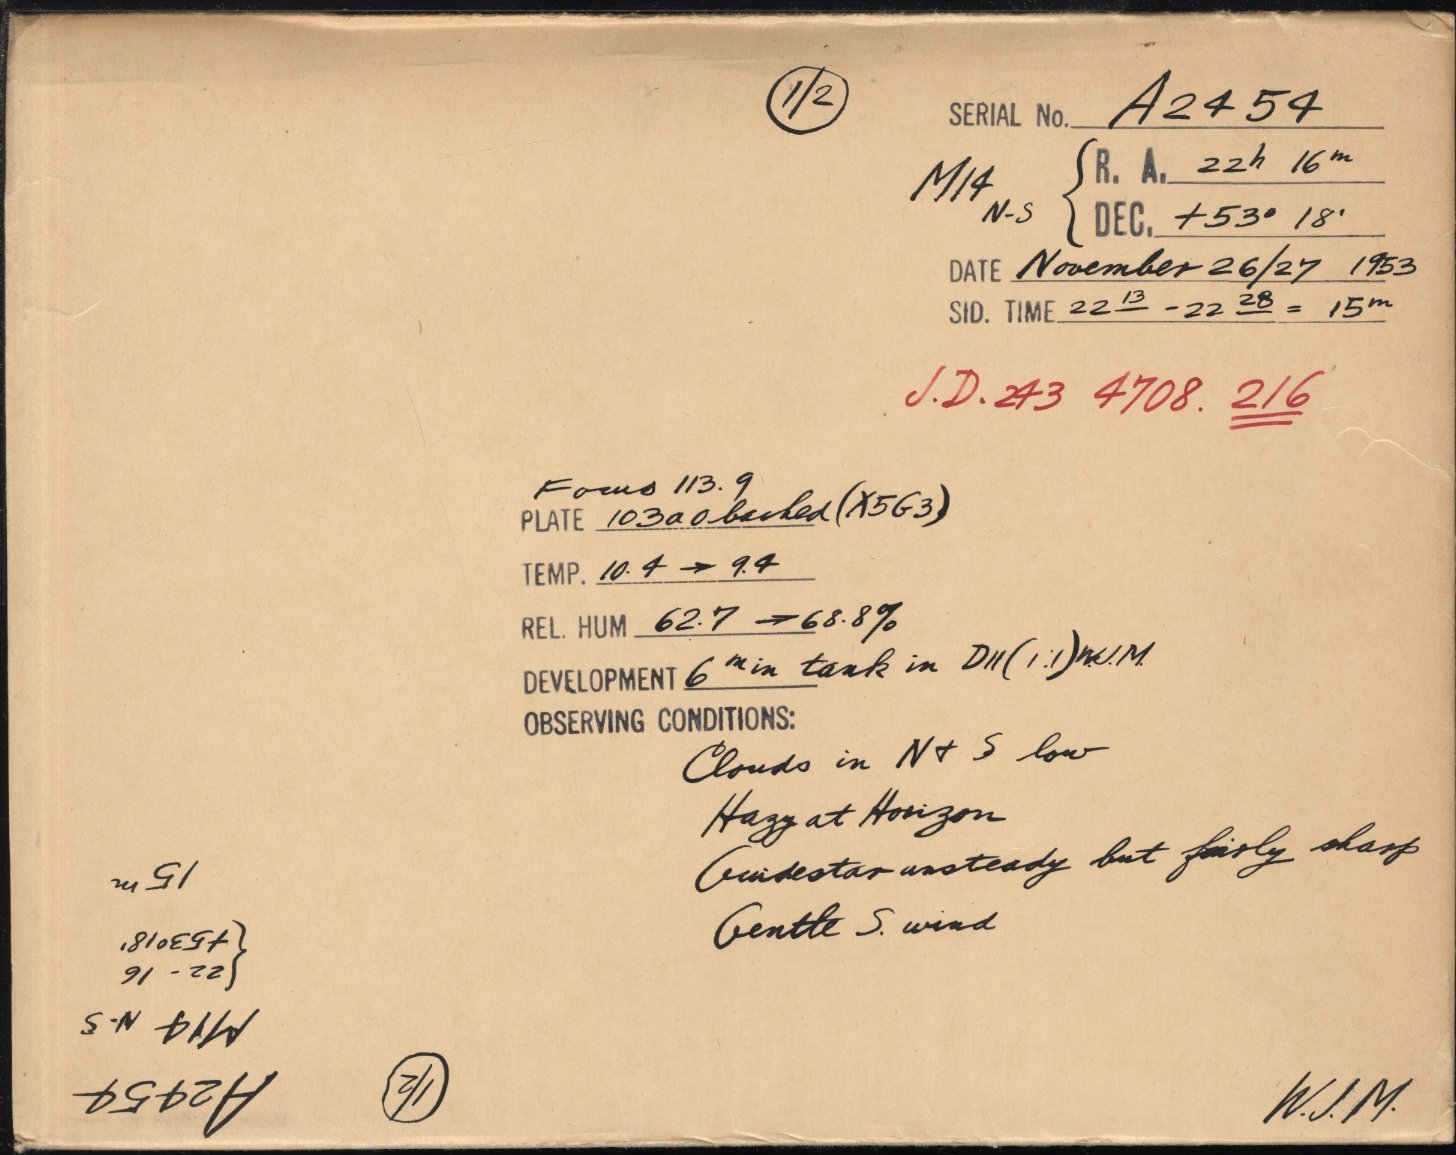 1/2
SERIAL No. A2454
M14 N-S
R. A. 22h 16m
DEC. +53° 18'
DATE November 26/27 1953
SID. TIME 22 13 - 22 28 = 15m
J.D. 243 4708. 216
Focus 113.9
PLATE 103a O backed (X5G3)
TEMP. 10.4 → 9.4
REL. HUM 62.7 → 68.8%
DEVELOPMENT 6 min tank in D11 (1:1) W.J.M.
OBSERVING CONDITIONS:
Clouds in N & S low
Hazy at Horizon
Guidestar unsteady but fairly sharp
Gentle S. wind
W.J.M.
1/2
A2454
M14 N-S
22 - 16
+53°18'
15 m